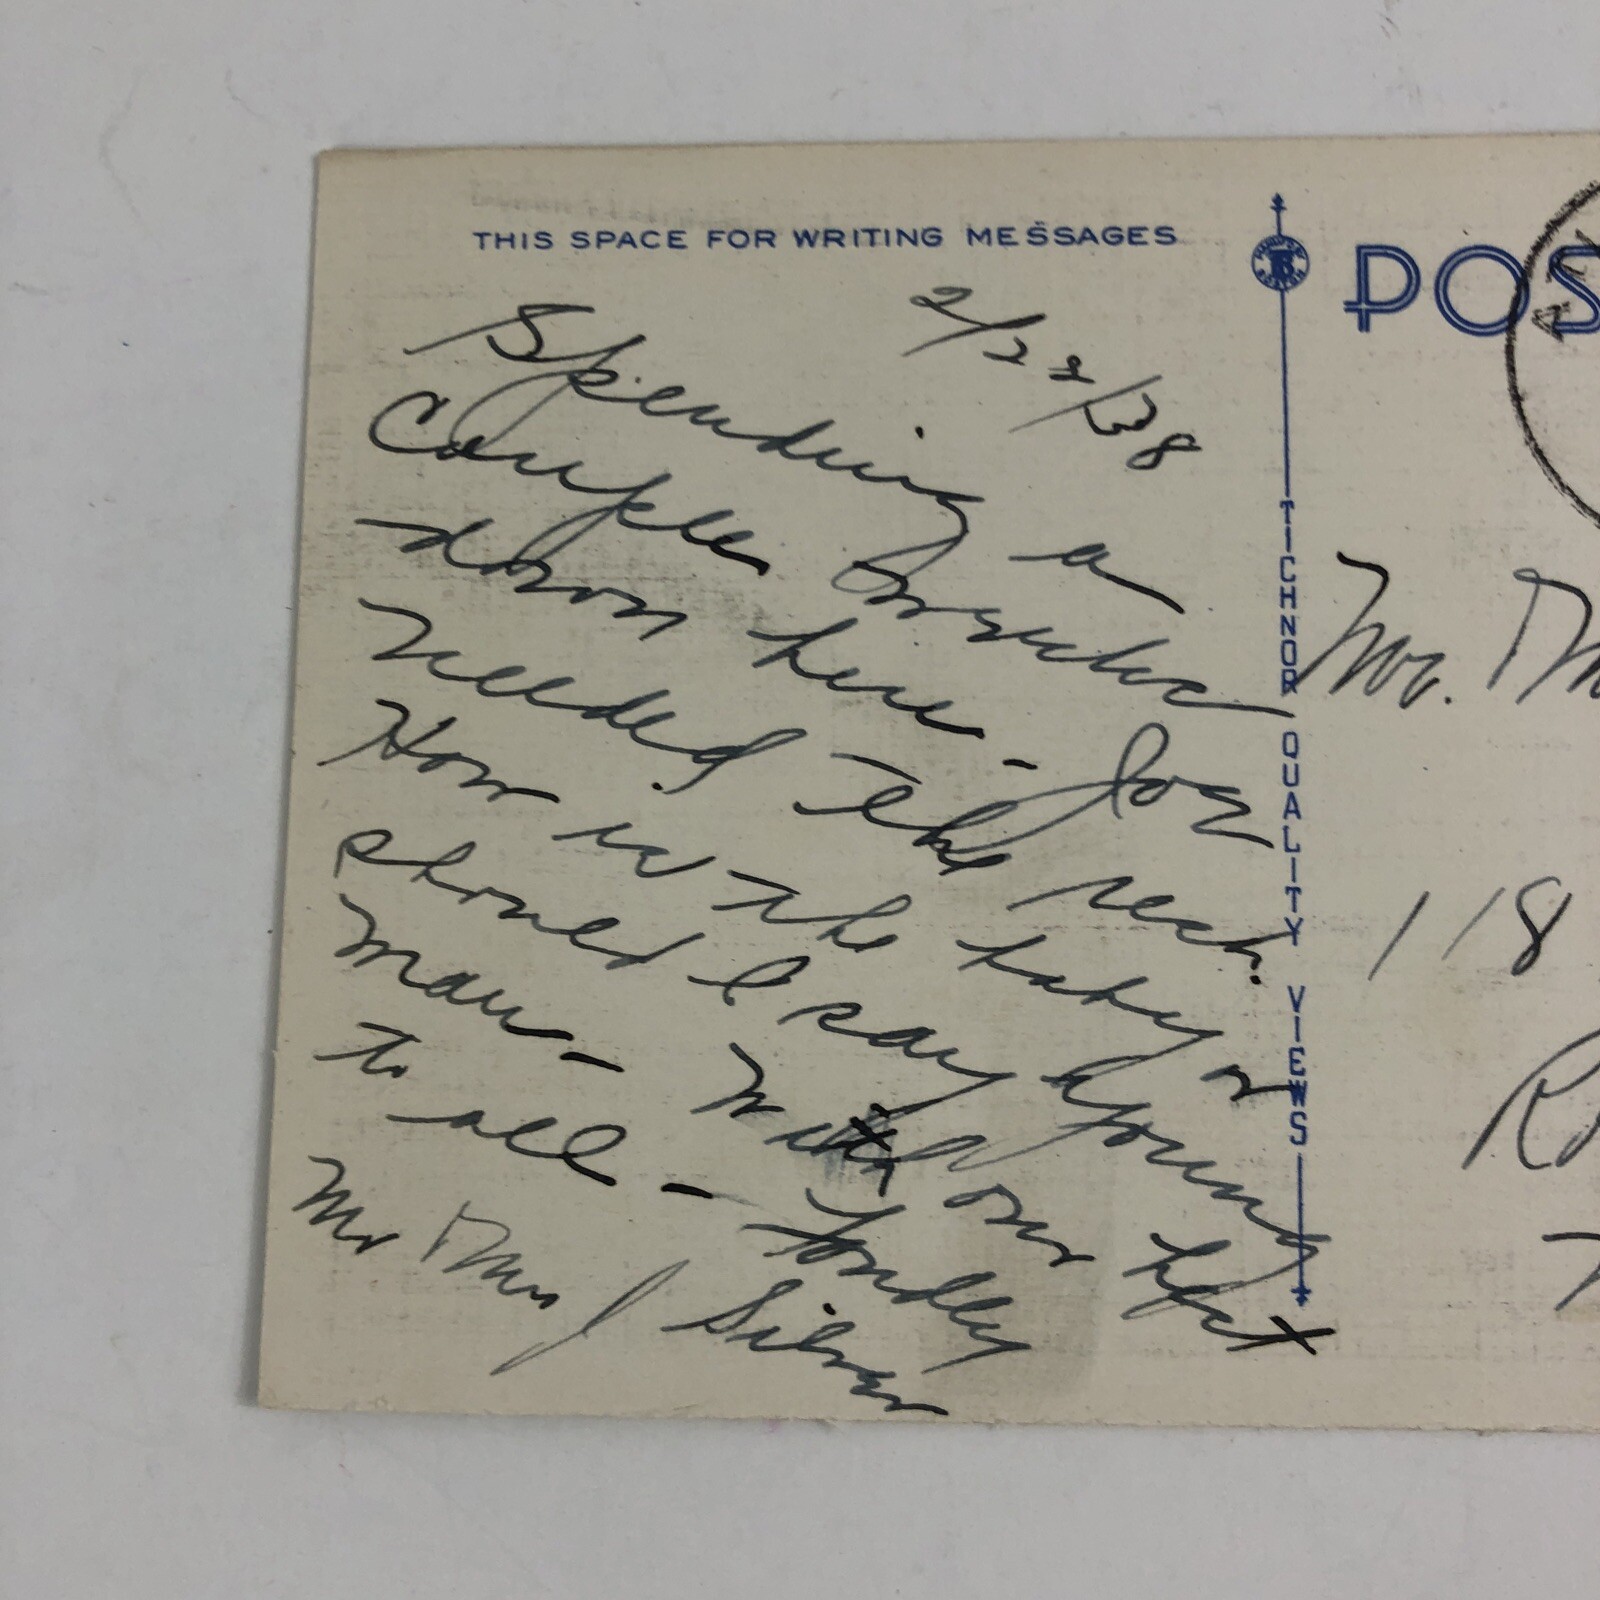 THIS SPACE FOR WRITING MESSAGES
2/22/38
Spending a
Couple weeks
down here - Joe
needed the rest.
How is the baby or
should I say young
man - With our best
to all - Fondly
Mr & Mrs J Silver
POS
TICHNOR QUALITY VIEWS
Mr.
118